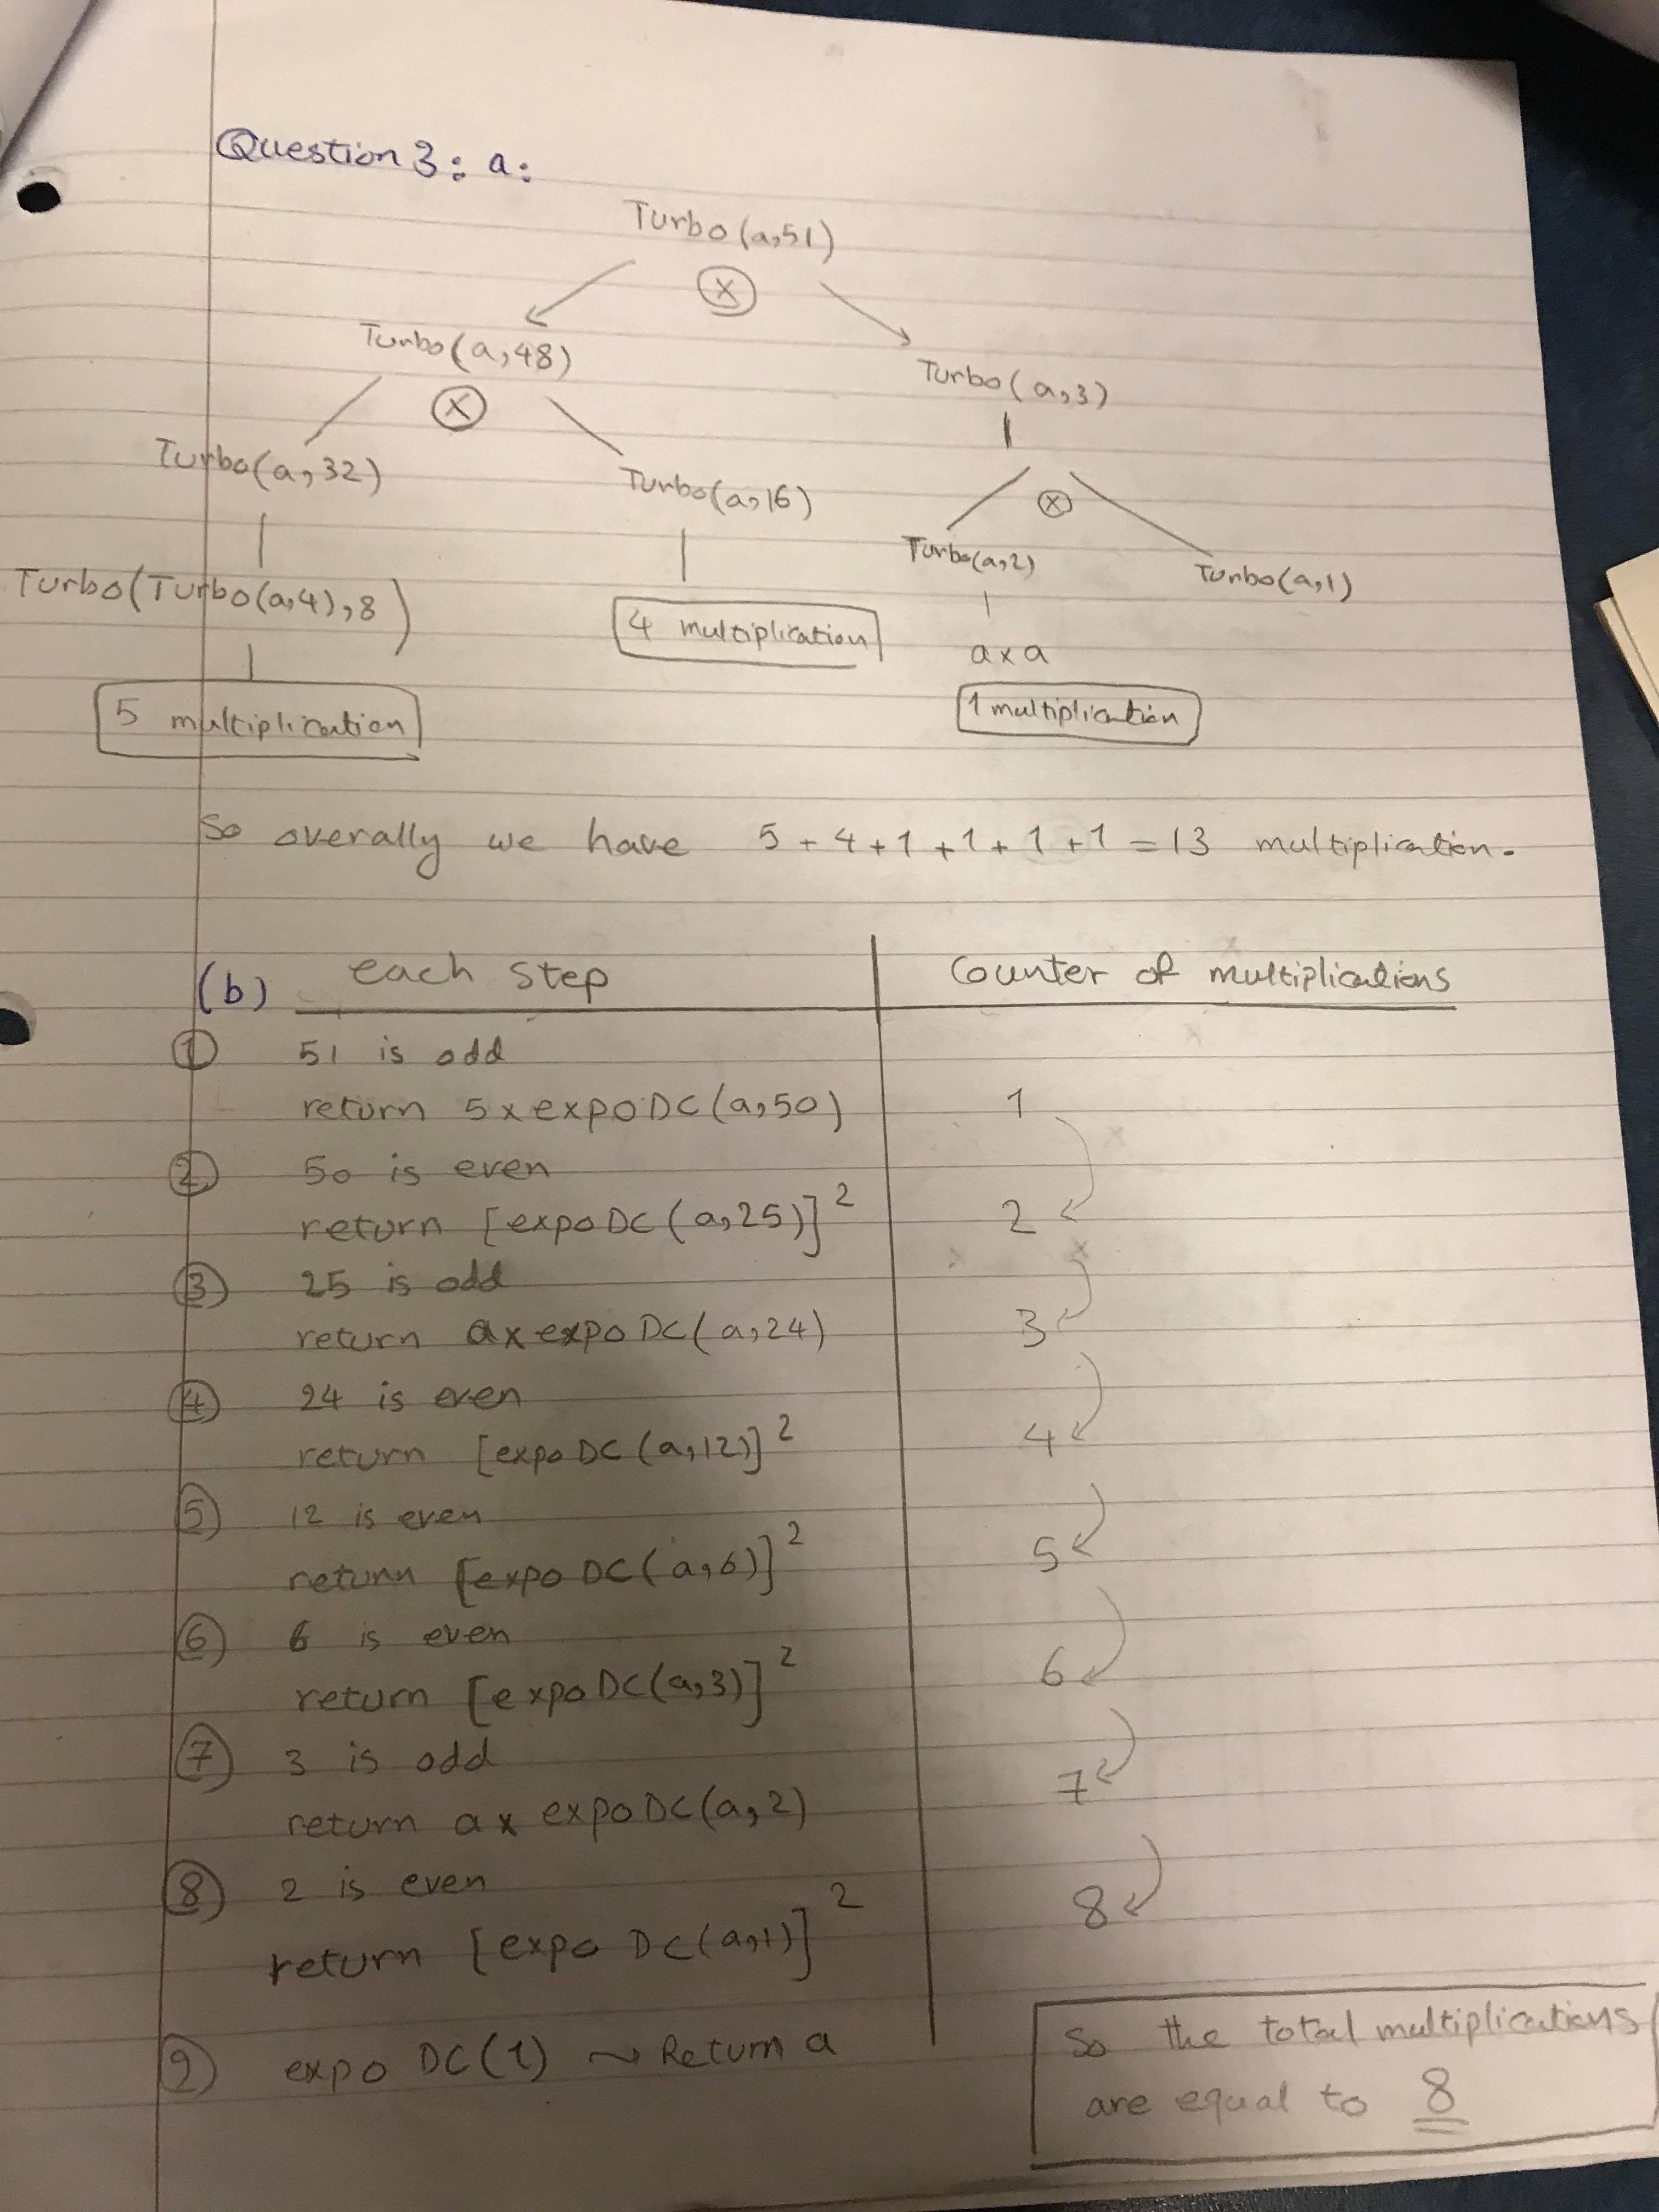 Question 3: a:
Turbo(a,51)
×
Turbo(a,48)
Turbo(a,3)
×
Turbo(a,32)
Turbo(a,16)
×
Turbo(a,2)
Turbo(a,1)
Turbo(Turbo(a,4),8)
4 multiplication
a×a
5 multiplication
1 multiplication
So overally we have 5+4+1+1+1+1=13 multiplication.
(b) each step Counter of multiplications
① 51 is odd
return 5×expoDC(a,50) 1
② 50 is even
return [expoDC(a,25)]² 2
③ 25 is odd
return a×expoDC(a,24) 3
④ 24 is even
return [expoDC(a,12)]² 4
⑤ 12 is even
return [expoDC(a,6)]² 5
⑥ 6 is even
return [expoDC(a,3)]² 6
⑦ 3 is odd
return a× expoDC(a,2) 7
⑧ 2 is even
return [expo DC(a,1)]² 8
⑨ expo DC(1) ⤳ Return a
So the total multiplications
are equal to 8